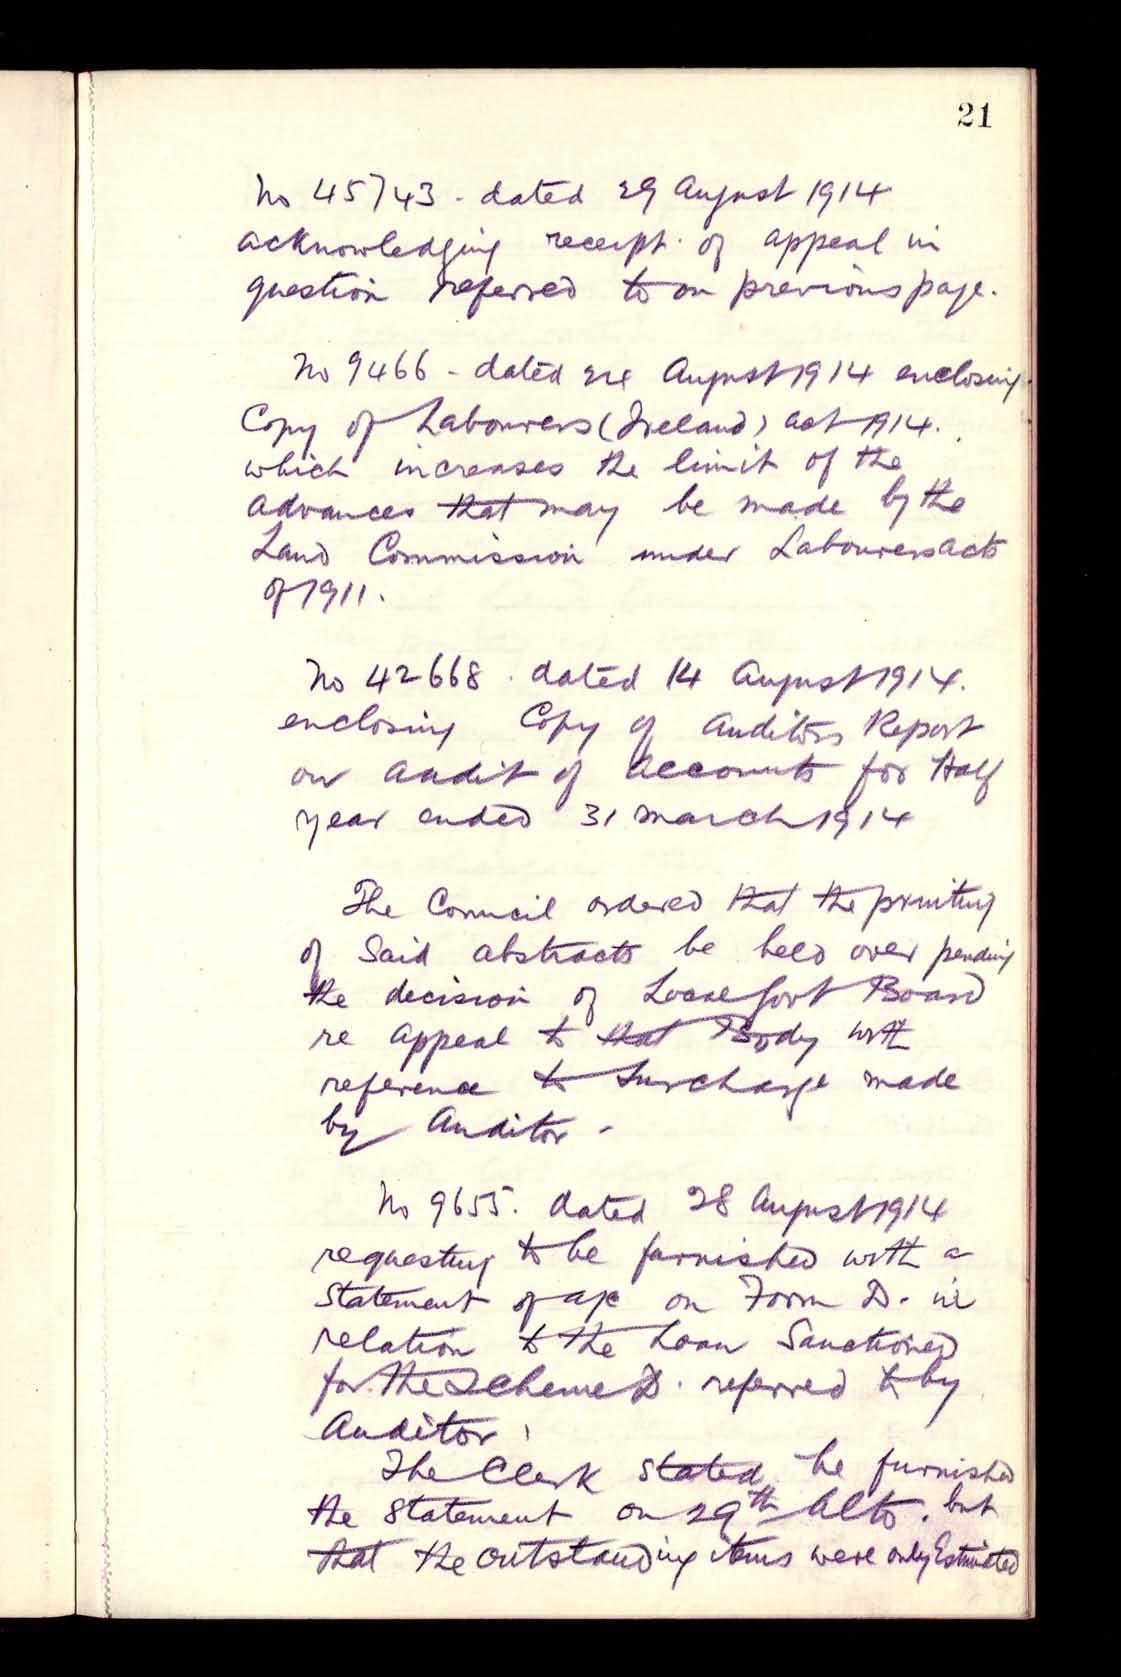 21
No 45743 - dated 29 August 1914
acknowledging receipt of appeal in
question referred to on previous page.
No 9466 - dated 24 August 1914 enclosing
Copy of Labourers (Ireland) Act 1914.
which increases the limit of the
advances that may be made by the
Land Commission under Labourers Acts
of 1911.
No 42668. dated 14 August 1914.
enclosing Copy of Auditors Report
on audit of Accounts for Half
year ended 31 March 1914
The Council ordered that the printing
of Said abstracts be held over pending
the decision of Local Govt Board
re appeal to that Body with
reference to Surcharge made
by Auditor -
No 9655. dated 28 August 1914
requesting to be furnished with a
Statement of a/c on Form D. in
relation to the Loan Sanctioned
for the Scheme D. referred to by
Auditor
The Clerk stated he furnished
the Statement on 29th Ulto. but
that the outstanding items were only Estimated